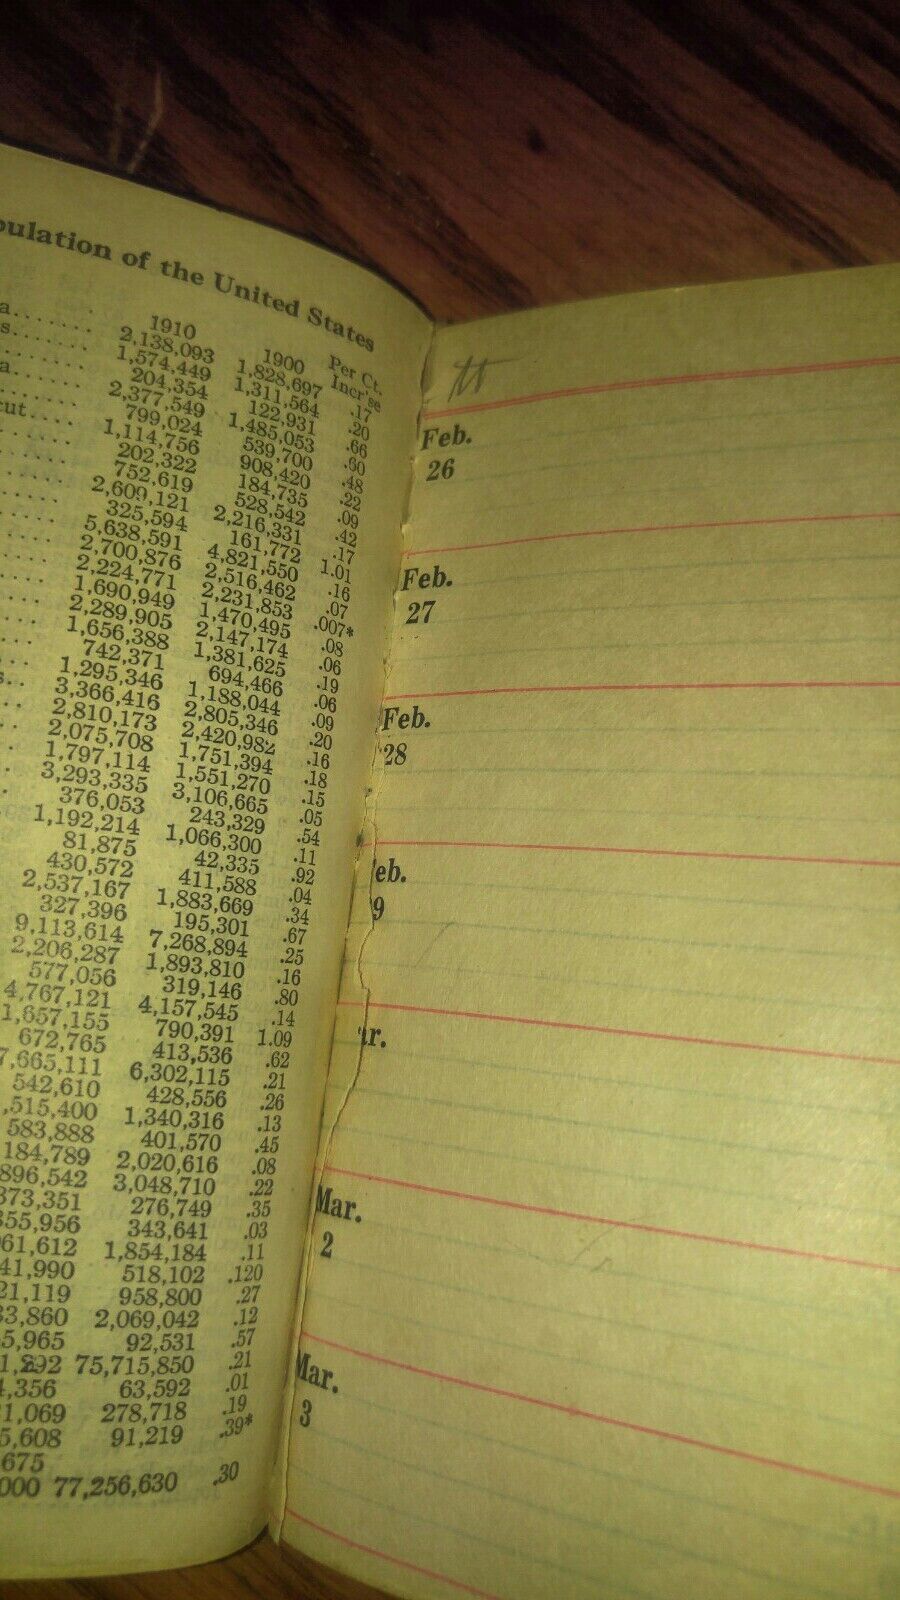 pulation of the United States
1910 1900 Per Ct. Incr'se
a....... 2,138,093 1,828,697 .17
s....... 1,574,449 1,311,564 .20
204,354 122,931 .66
a...... 2,377,549 1,485,053 .60
799,024 539,700 .48
cut.... 1,114,756 908,420 .22
202,322 184,735 .09
752,619 528,542 .42
2,609,121 2,216,331 .17
325,594 161,772 1.01
5,638,591 4,821,550 .16
2,700,876 2,516,462 .07
2,224,771 2,231,853 .007*
1,690,949 1,470,495 .08
2,289,905 2,147,174 .06
1,656,388 1,381,625 .19
742,371 694,466 .06
1,295,346 1,188,044 .09
s.. 3,366,416 2,805,346 .20
2,810,173 2,420,982 .16
2,075,708 1,751,394 .18
1,797,114 1,551,270 .15
3,293,335 3,106,665 .05
376,053 243,329 .54
1,192,214 1,066,300 .11
81,875 42,335 .92
430,572 411,588 .04
2,537,167 1,883,669 .34
327,396 195,301 .67
9,113,614 7,268,894 .25
2,206,287 1,893,810 .16
577,056 319,146 .80
4,767,121 4,157,545 .14
1,657,155 790,391 1.09
672,765 413,536 .62
7,665,111 6,302,115 .21
542,610 428,556 .26
,515,400 1,340,316 .13
583,888 401,570 .45
184,789 2,020,616 .08
896,542 3,048,710 .22
373,351 276,749 .35
355,956 343,641 .03
061,612 1,854,184 .11
41,990 518,102 .120
21,119 958,800 .27
33,860 2,069,042 .12
5,965 92,531 .57
75,715,850 .21
4,356 63,592 .01
1,069 278,718 .19
5,608 91,219 .39*
675
000 77,256,630 .30
Feb.
26
Feb.
27
Feb.
28
eb.
9
ar.
Mar.
2
Mar.
3